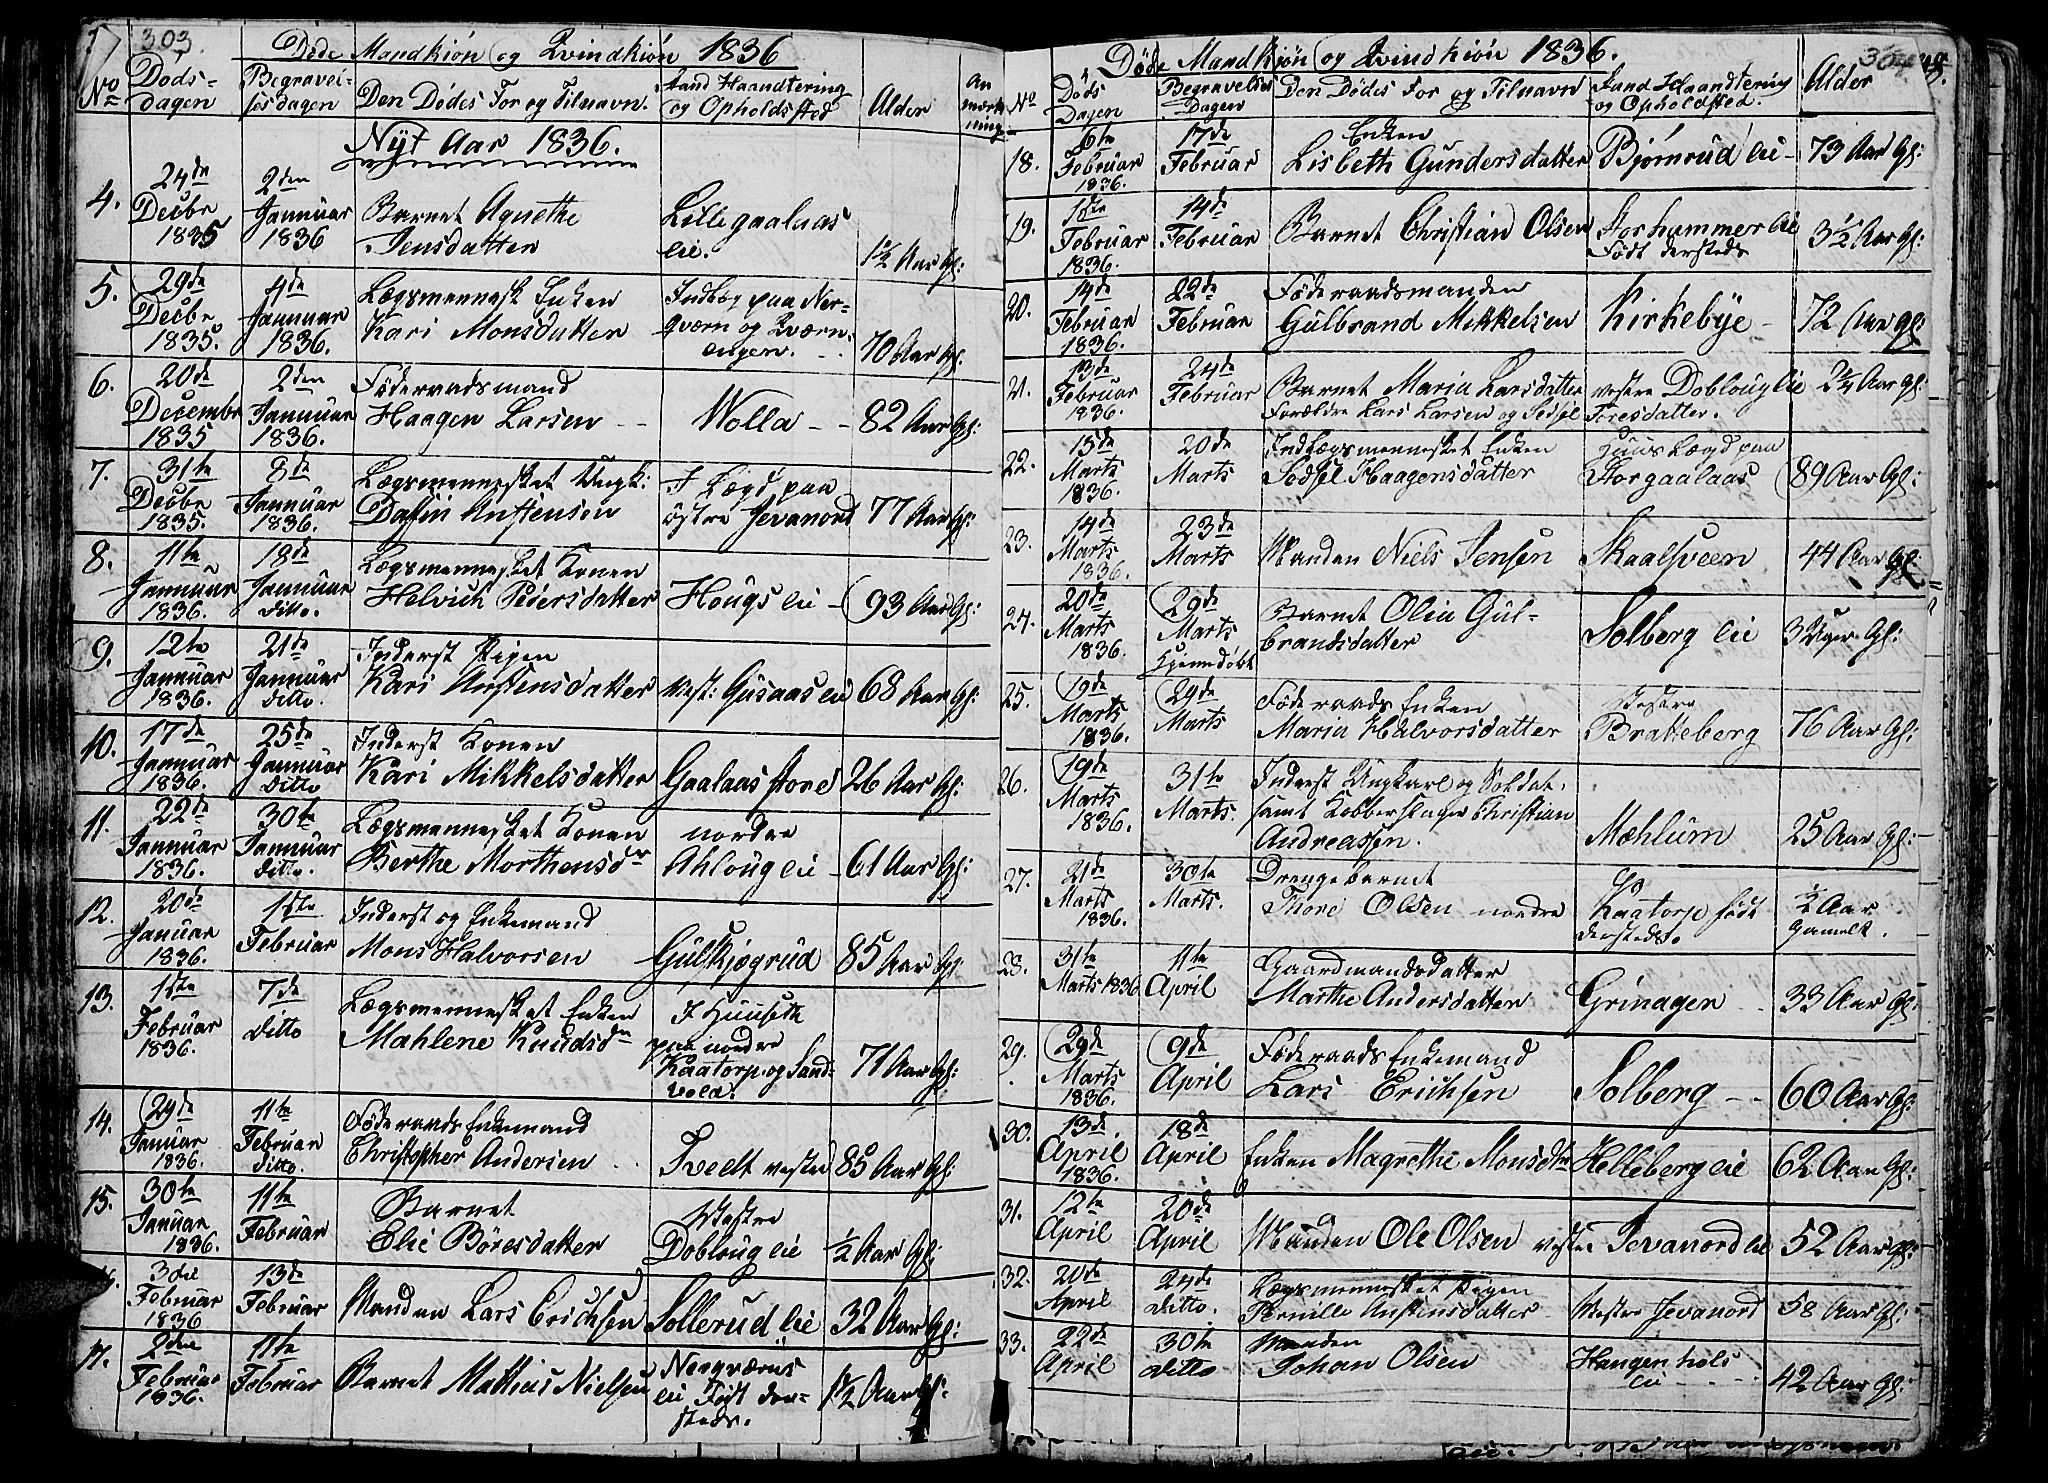 303.
Døde Mandkiøn og Qvindkiøn 1836
No
Døds-
dagen
Begravel-
sesdagen
Den Dødes For og Tilnavn.
Stand Haandtering
og Opholdssted
Alder
An
mærk
ning
Nyt Aar 1836.
4.
24de
Decbr
1835
2den
Januar
1836
Barnet Agnethe
Jensdatter
Lillegaalaas
eie.
1½ Aar Gl:
5.
29de
Decbr
1835.
4de
Januar
1836.
Lægsmennesk Enken
Kari Monsdatter
Indlæg paa Ner-
qværn og Qværn-
engen.
70 Aar Gl:
6.
20de
Decembr
1835
2den
Januar
1836.
Føderaadsmand
Haagen Larsen
Wolla
82 Aar Gl:
7.
31te
Decbr
1835.
8de
Januar
1836.
Lægsmennesket Ungk:
Dafin Anstensen
I Lægd paa
østre Jevanord
77 Aar Gl:
8.
11te
Januar
1836.
18de
Januar
ditto.
Lægsmennesket Konen
Helvich Pedersdatter
Hougs eie
93 Aar Gl:
9.
12te
Januar
1836.
21de
Januar
ditto.
Inderst Pigen
Kari Anstensdatter
Vest: Gusaas eie
68 Aar Gl:
10.
17de
Januar
1836.
25de
Januar
ditto
Inderst Konen
Kari Mikkelsdatter
Gaalaas store
26 Aar Gl:
11.
22de
Januar
1836.
30te
Januar
ditto.
Lægsmennesket Konen
Berthe Morthensdr
nordre
Ahloug eie
61 Aar Gl:
12.
20de
Januar
1836.
1ste
Februar
Inderst og Enkemand
Mons Halvorsen
Gulskjøgrud
85 Aar Gl:
13.
1ste
Februar
1836.
7de
ditto
Lægsmennesket Enken
Mahlene Knudsdr
I Huuseth
paa nordre
Kaatorp og Sand-
vold.
71 Aar Gl:
14.
24de
Januar
1836.
11te
Februar
ditto.
Føderaads Enkemand
Christopher Andersen
Tvedt vestre
85 Aar Gl:
15.
30te
Januar
1836.
11te
Februar
Barnet
Elie Børesdatter
Vestre
Dobloug eie
½ Aar Gl:
3die
Februar
1836
13de
Februar
Manden Lars Erichsen
Sollerud eie
32 Aar Gl:
17.
2den
Februar
1836.
11te
Februar
Barnet Mathias Nielsen
Nerqværns
eie Født der-
steds.
1½ Aar Gl:
304.
Døde Mandkjøn og Qvindkiøn 1836.
No
Døds
Dagen
Begravelses
Dagen
Den Dødes For og Tilnavn
Stand Haandtering
og Opholdsted.
Alder
18.
6te
Februar
1836.
17de
Februar
Enken
Lisbeth Gundersdatter
Bjørnrud eie
73 Aar Gl:
19.
1ste
Februar
1836.
14de
Februar
Barnet Christian Olsen
Storhammer eie
Født dersteds
3½ Aar Gl:
20.
14de
Februar
1836.
22de
Februar
Føderaadsmanden
Gulbrand Mikkelsen
Kirkebye
72 Aar Gl:
21.
13de
Februar
1836.
24de
Februar
Barnet Maria Larsdatter
Forældre Lars Larsen og Sedsel
vestre Dobloug eie
Toresdatter.
2¼ Aar Gl:
22.
15de
Marts
1836.
20de
Marts
Indlægsmennesket Enken
Sødsel Haagensdatter
Huus Lægd paa
Storgaalaas
89 Aar Gl:
23.
14de
Marts
1836.
23de
Marts
Manden Niels Jensen
Skaalsveen
44 Aar Gl:
24.
20de
Marts
1836.
29de
Marts
Hjemmdøbt
Barnet Olia Gul-
brandsdatter
Solberg eie
3 Uger Gl:
25.
19de
Marts
1836.
29de
Marts
Føderaads Enken
Maria Halvorsdatter
Vestre
Bratteberg
76 Aar Gl:
26.
19de
Marts
1836.
31te
Marts.
Inderst Ungkarl og Soldat
samt Kobberslager Christian
Andreassen.
Mæhlum
25 Aar Gl:
27.
21de
Marts
1836.
30te
Marts.
Drengebarnet
Thore Olsen nordre
Kaatorp født
dersteds.
½ Aar
gamelt.
28.
31te
Marts 1836
11te
April
Gaardmandsdatter
Marthe Andersdatter
Grinagen
33 Aar Gl:
29.
29de
Marts
1836.
9de
April
Føderaads Enkemand
Lars Erichsen
Solberg
60 Aar Gl:
30.
13de
April
1836.
18de
April
Enken Magrethe Monsdtr
Helleberg eie
62 Aar Gl:
31.
12te
April
20de
April
Manden Ole Olsen
vestre Jevanord eie
52 Aar Gl:
32.
20de
April
24de
ditto.
Lægsmennesket Pigen
Pernille Anstensdatter
Vestre Jevanord
58 Aar Gl:
33.
22de
April
30te
ditto
Manden
Johan Olsen
Haugen hols
eie
42 Aar Gl: